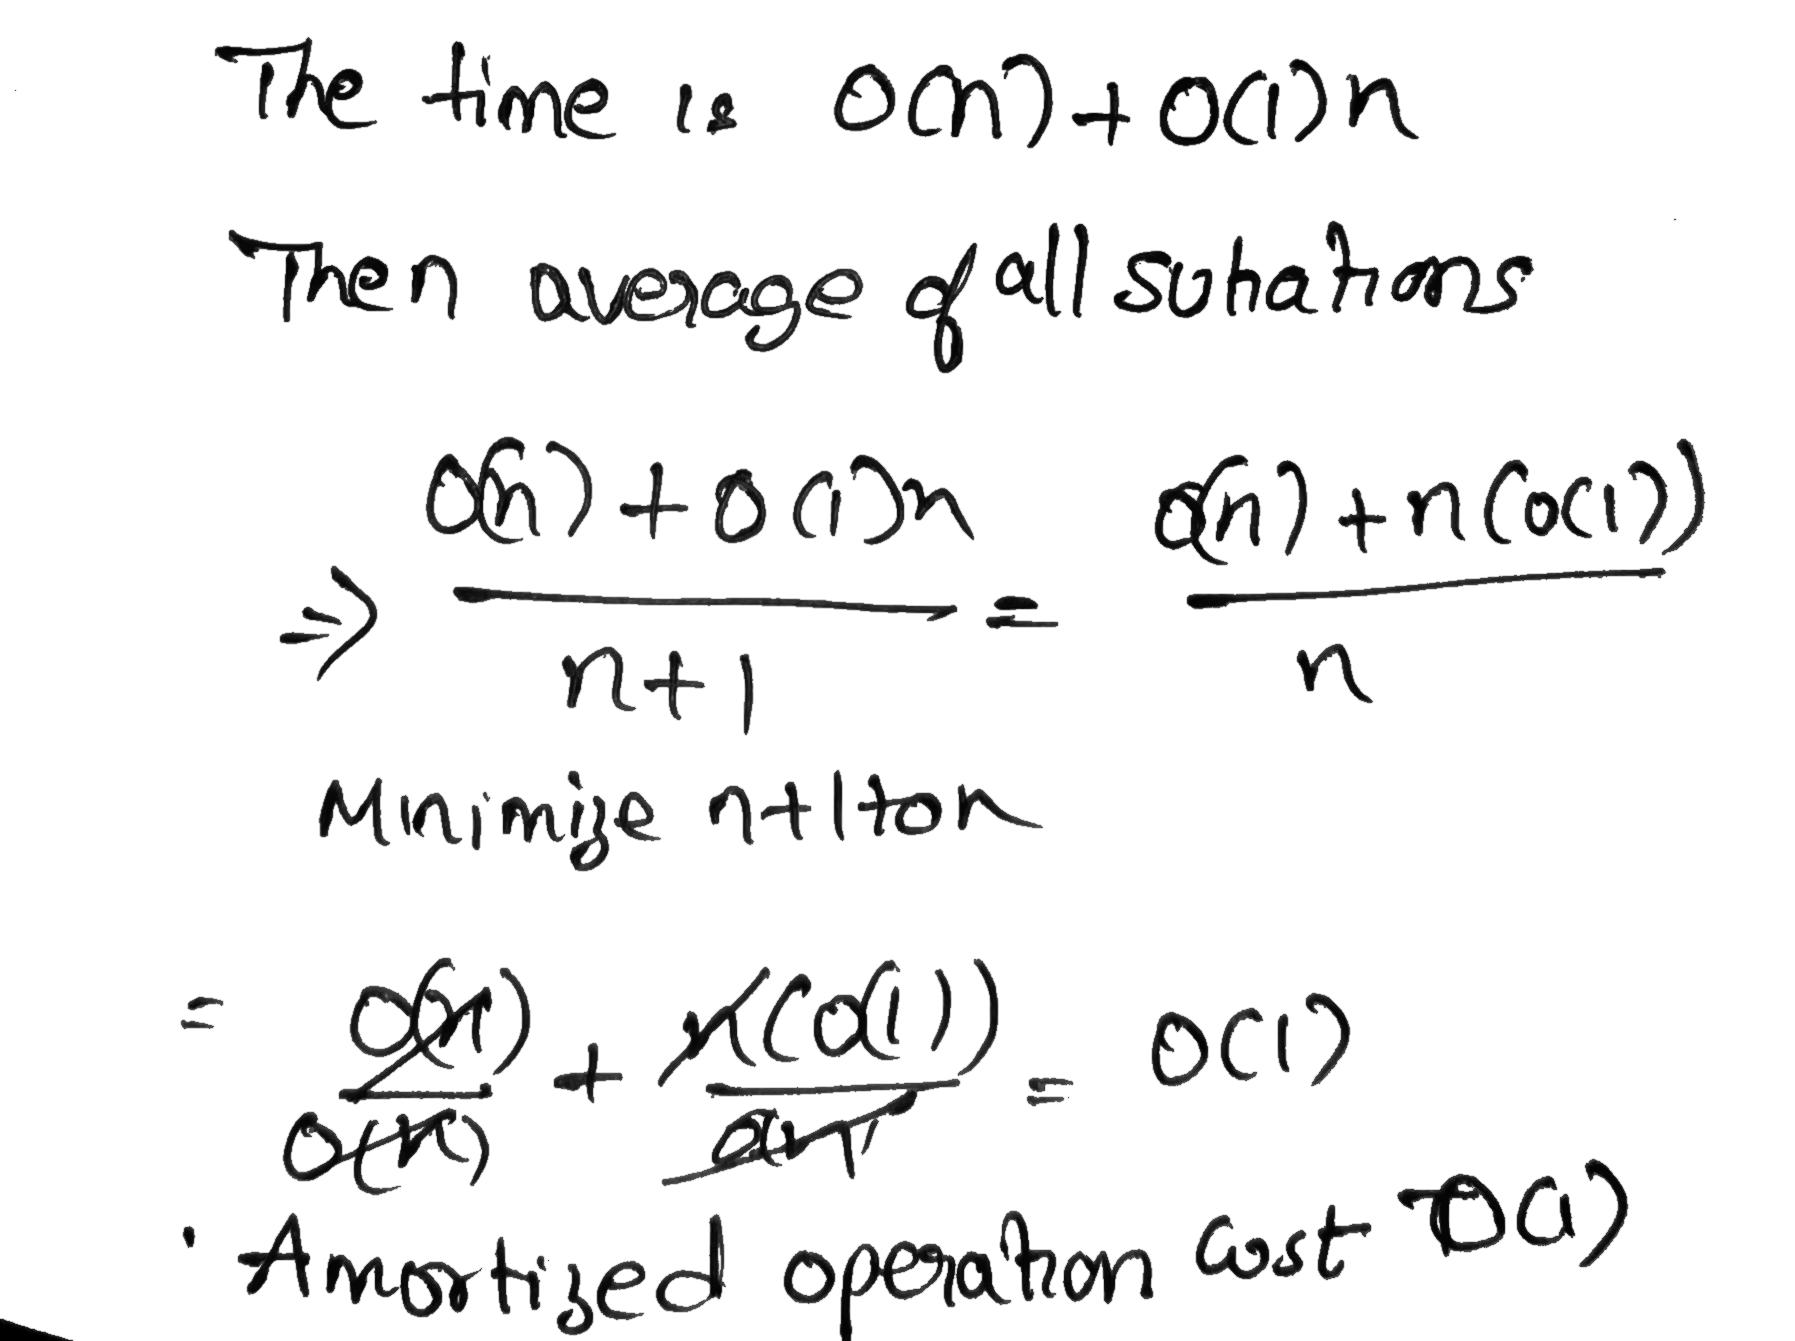 The time is O(n) + O(1)n
Then average of all suhations
⇒ O(n) + O(1)n / n+1 = O(n) + n(O(1)) / n
Minimize n+1 to n
= O(n) / O(n) + n(O(1)) / O(n) = O(1)
· Amortized operation cost O(1)